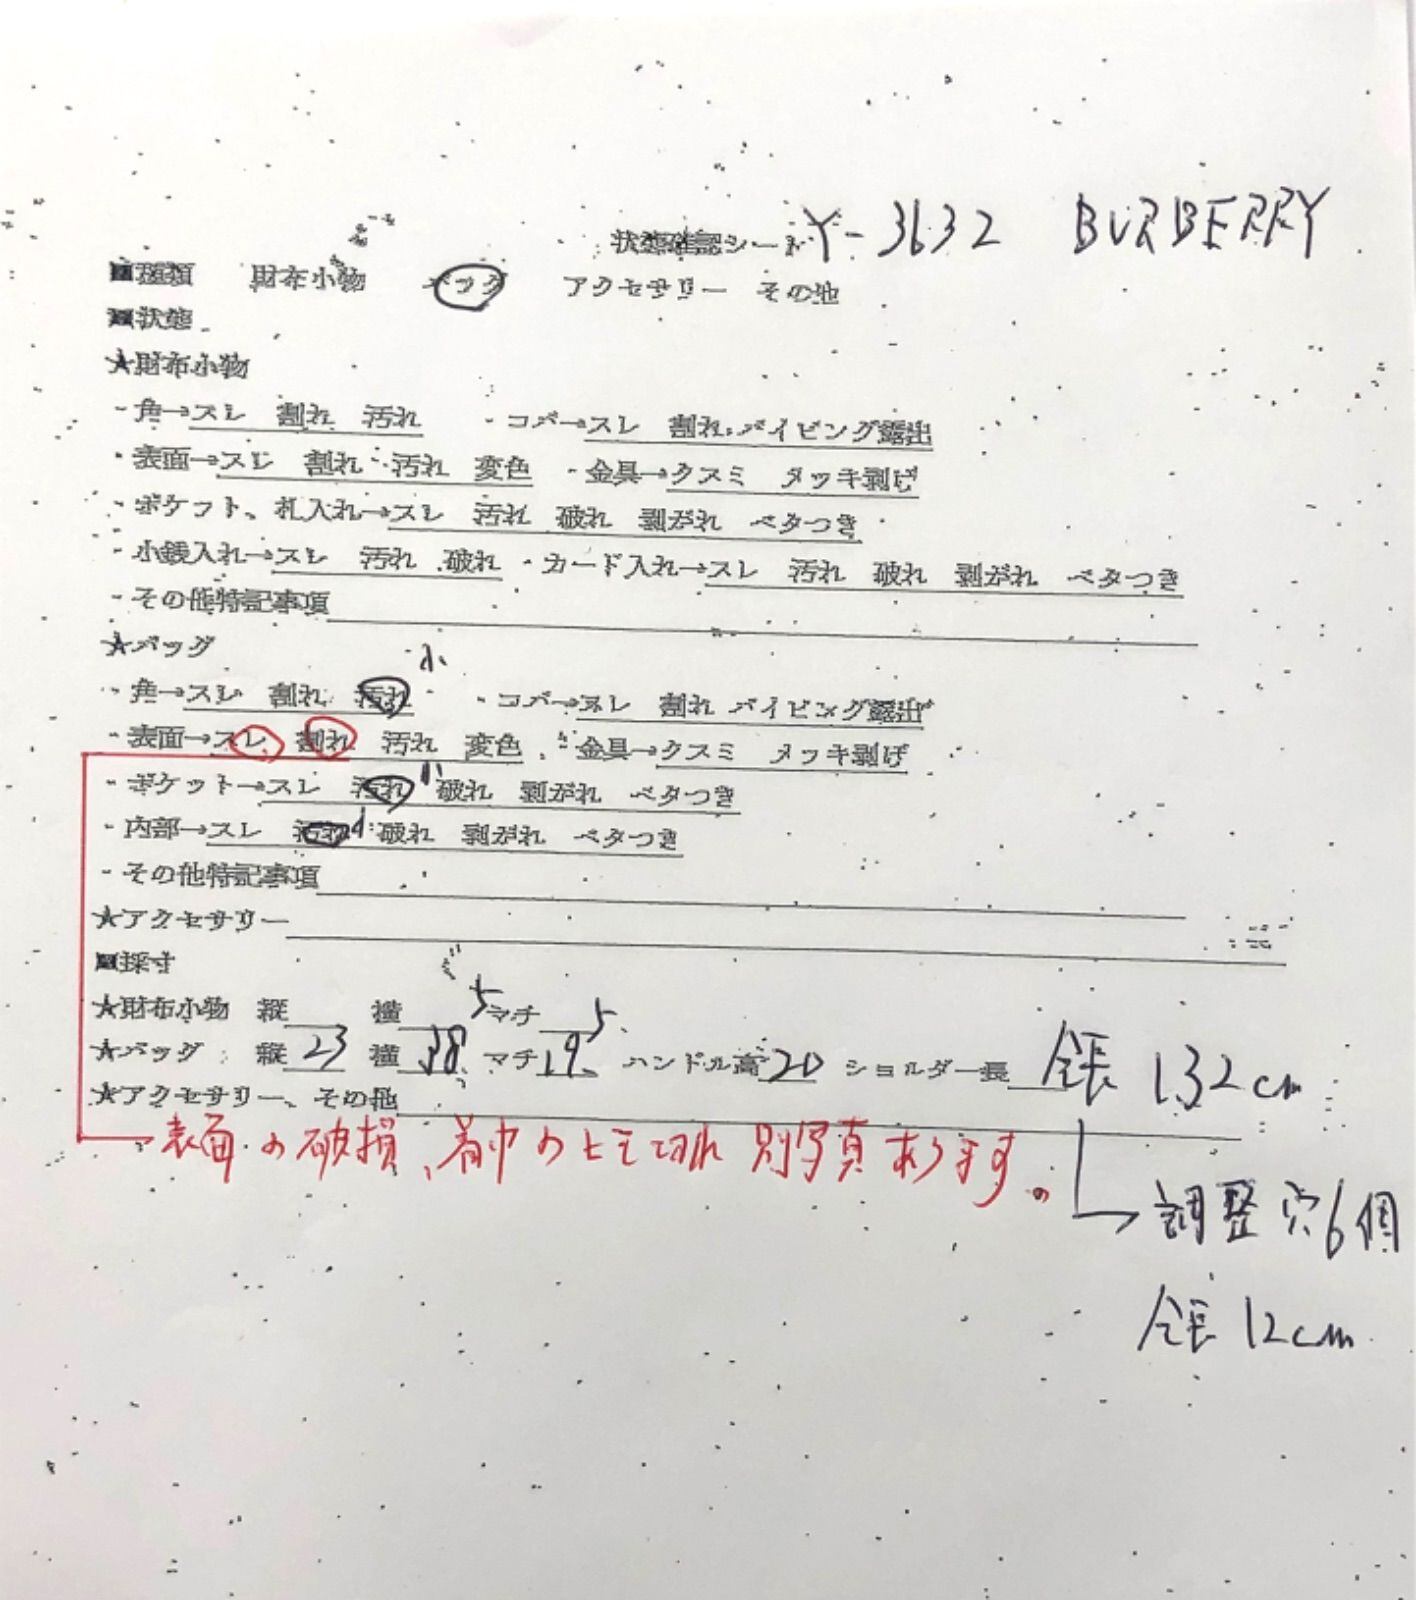 状態確認シート Y-3632 BURBERRY
■種類 財布小物 バッグ アクセサリー その他
■状態
★財布小物
・角→スレ 割れ 汚れ ・コバ→スレ 割れ パイピング露出
・表面→スレ 割れ 汚れ 変色 ・金具→クスミ メッキ剥げ
・ポケット、札入れ→スレ 汚れ 破れ 剥がれ ベタつき
・小銭入れ→スレ 汚れ 破れ ・カード入れ→スレ 汚れ 破れ 剥がれ ベタつき
・その他特記事項
★バッグ 小
・角→スレ 割れ 汚れ ・コバ→スレ 割れ パイピング露出
・表面→スレ 割れ 汚れ 変色 ・金具→クスミ メッキ剥げ
・ポケット→スレ 汚れ 小 破れ 剥がれ ベタつき
・内部→スレ 汚れ 破れ 剥がれ ベタつき
・その他特記事項
★アクセサリー
■採寸
★財布小物 縦 横 マチ
★バッグ 縦 23 横 38.5 マチ 19.5 ハンドル高 20 ショルダー長 全長 132cm
★アクセサリー、その他
表面の破損、背中の 切れ 別写真あります。
調整穴6個
全長 12cm